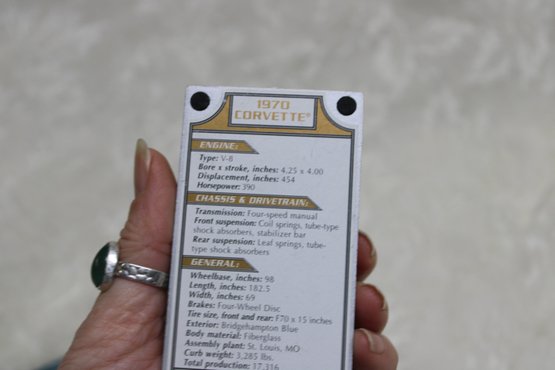 1970
CORVETTE®
ENGINE:
Type: V-8
Bore x stroke, inches: 4.25 x 4.00
Displacement, inches: 454
Horsepower: 390
CHASSIS & DRIVETRAIN:
Transmission: Four-speed manual
Front suspension: Coil springs, tube-type
shock absorbers, stabilizer bar
Rear suspension: Leaf springs, tube-
type shock absorbers
GENERAL:
Wheelbase, inches: 98
Length, inches: 182.5
Width, inches: 69
Brakes: Four-Wheel Disc
Tire size, front and rear: F70 x 15 inches
Exterior: Bridgehampton Blue
Body material: Fiberglass
Assembly plant: St. Louis, MO
Curb weight: 3,285 lbs.
Total production: 17,316